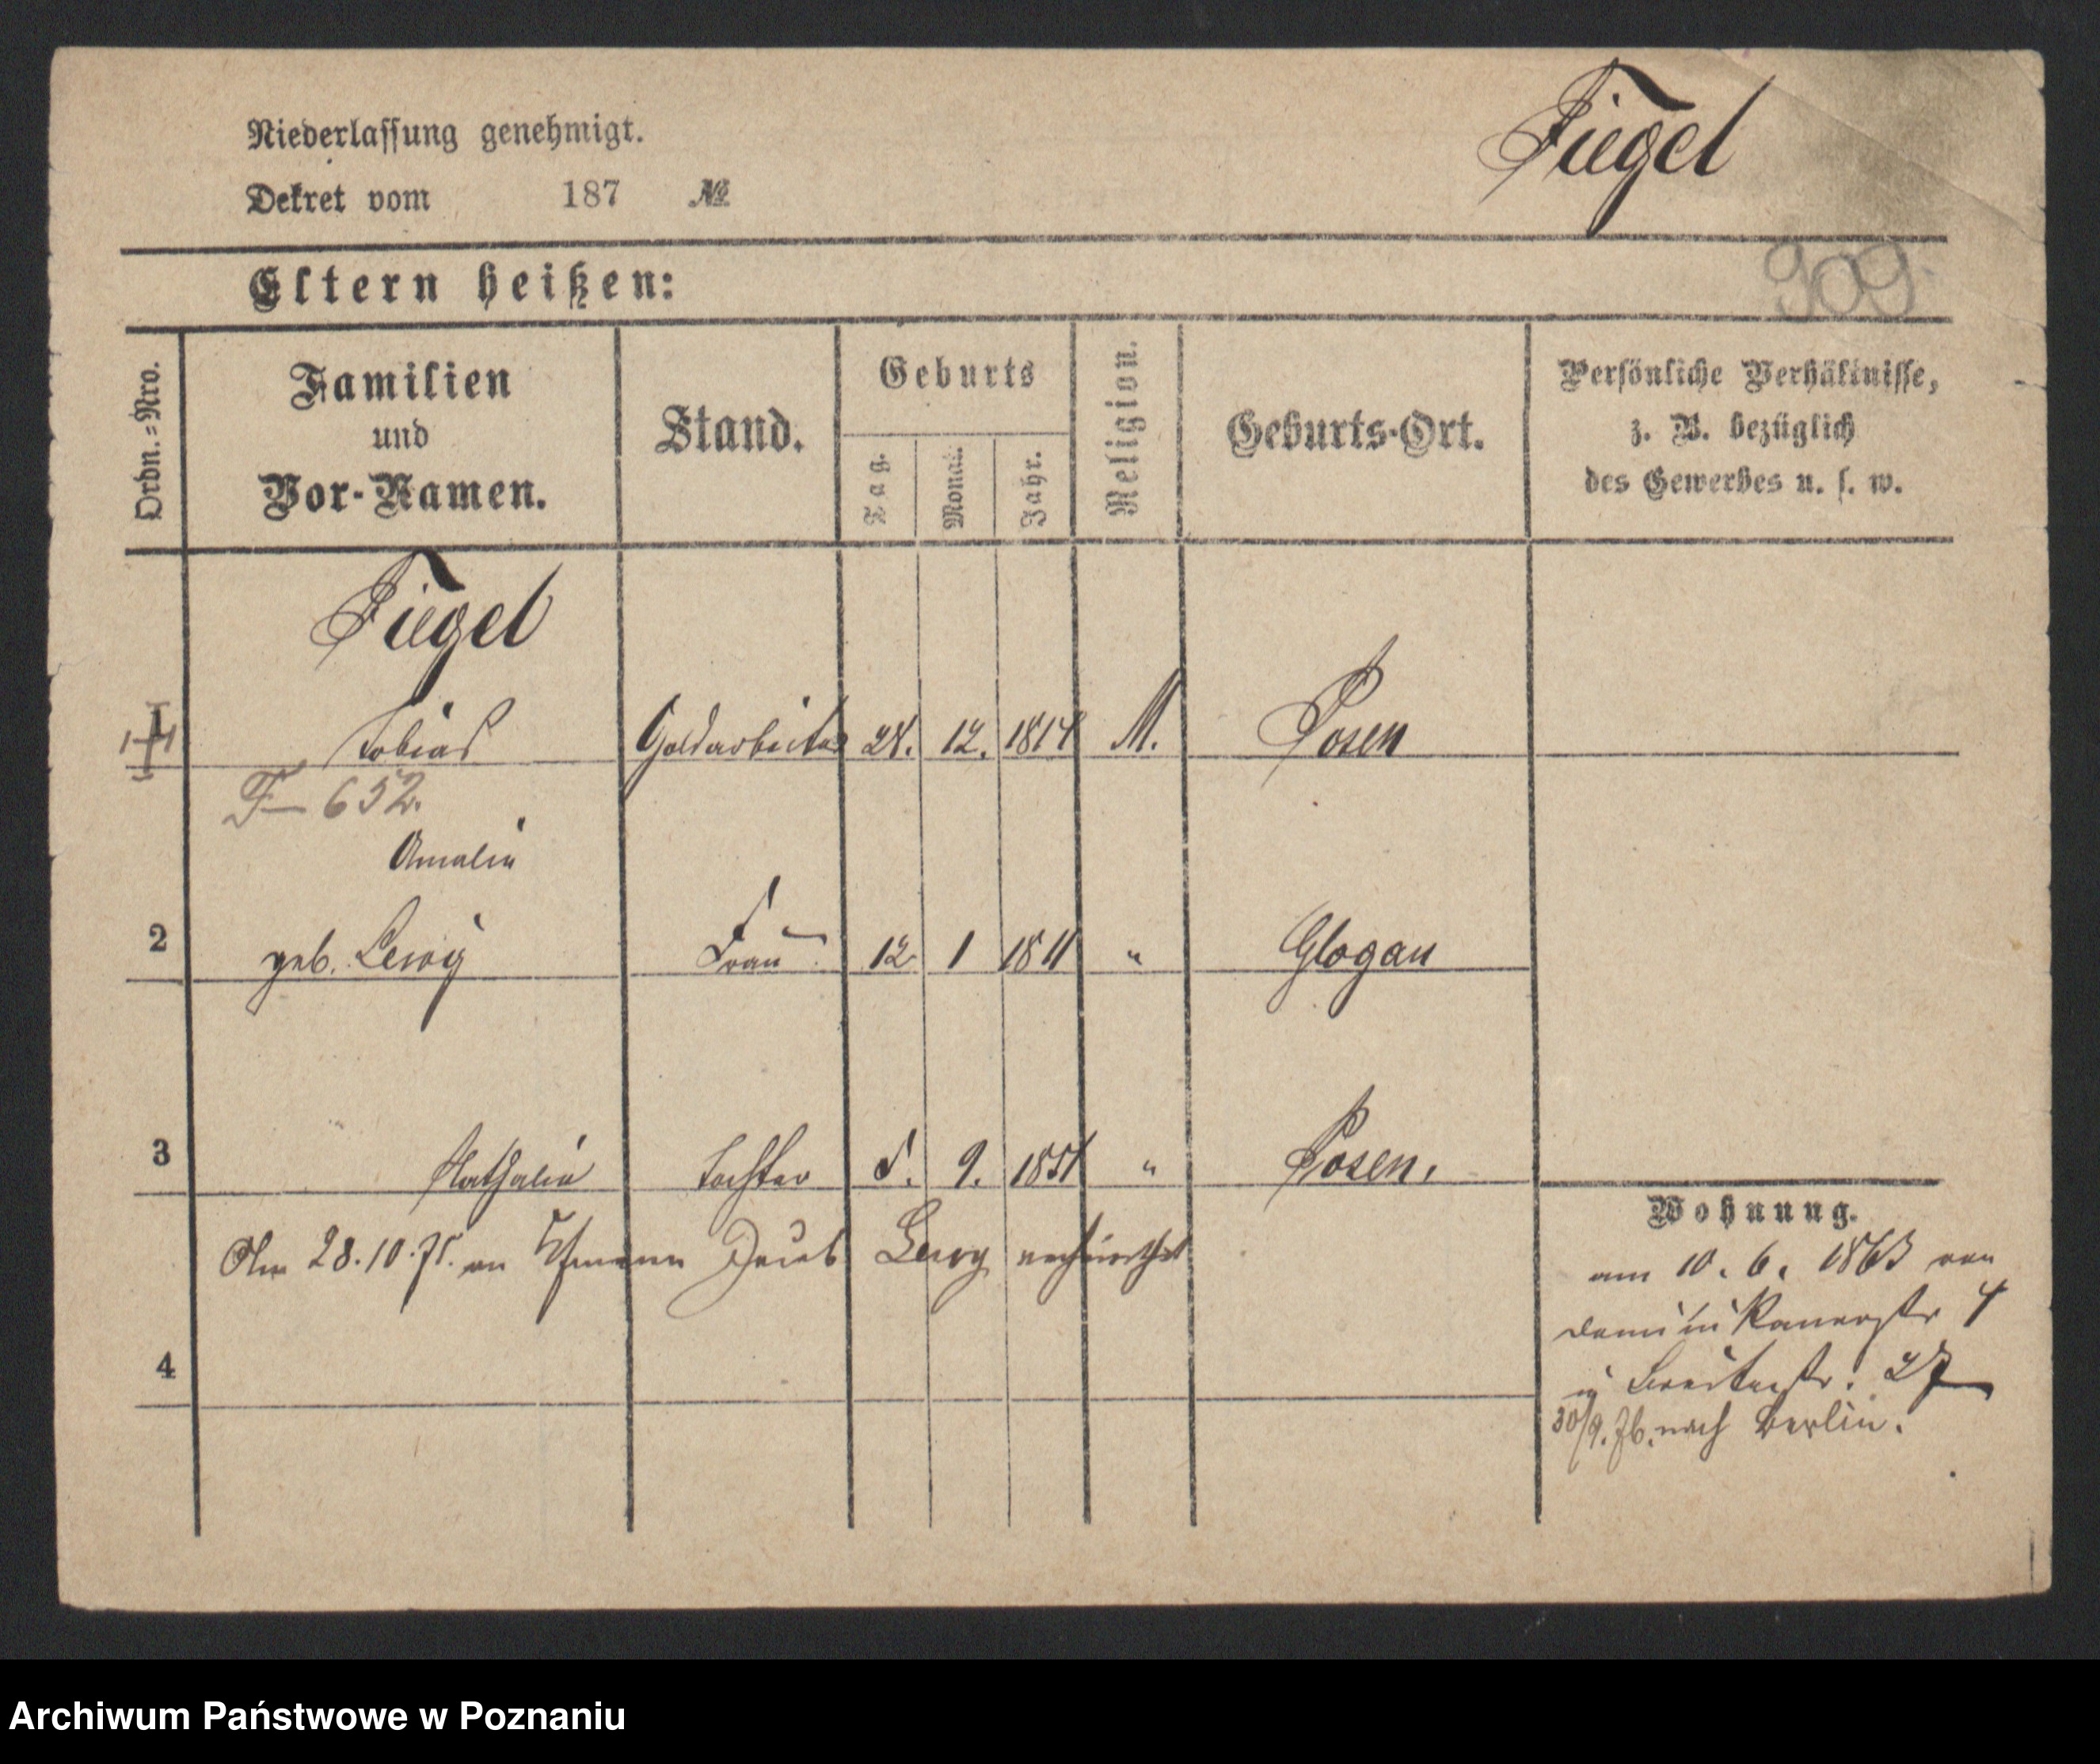 Niederlassung genehmigt.
Dekret vom 187 №
Fiegel
909.
Eltern heißen:
Ordn.=Nro.
Familien
und
Vor-Namen.
Stand.
Geburts
Tag.
Monat.
Jahr.
Religion.
Geburts-Ort.
Persönliche Verhältnisse,
z. B. bezüglich
des Gewerbes u. s. w.
Fiegel
1 Tobias Goldarbeiter 28. 12. 1814 M. Posen
F 652.
Amalie
2 geb. Lewy Frau 12 1 1811 " Glogau
3 Nathalie Tochter 5. 9. 1851 " Posen.
Am 28.10.75. an Lewy verheirathet
4
Wohnung.
am 10. 6. 1863 von
Dominikanerstr 4
n Breitestr. 27
30/9. 76. nach Berlin.
Archiwum Państwowe w Poznaniu